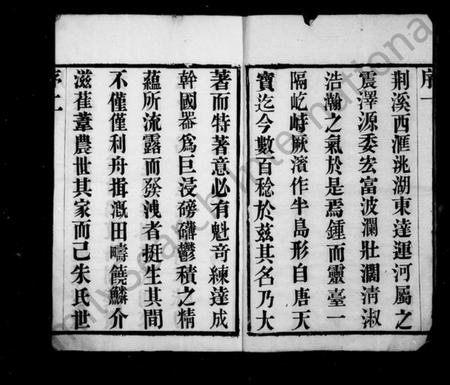 序一
荆溪西滙洮湖東達運河屬之
震澤源委宏富波瀾壯濶清淑
浩瀚之氣於是焉鍾而靈臺一
隔屹峙厥濱作半島形自唐天
寶迄今數百稔於兹其名乃大
著而特著意必有魁竒練達成
幹國器爲巨浸磅礴鬱積之精
蘊所流露而發洩者挺生其間
不僅僅利舟揖溉田疇饒鱗介
滋萑葦農世其家而已朱氏世
序二
FamilySearch International